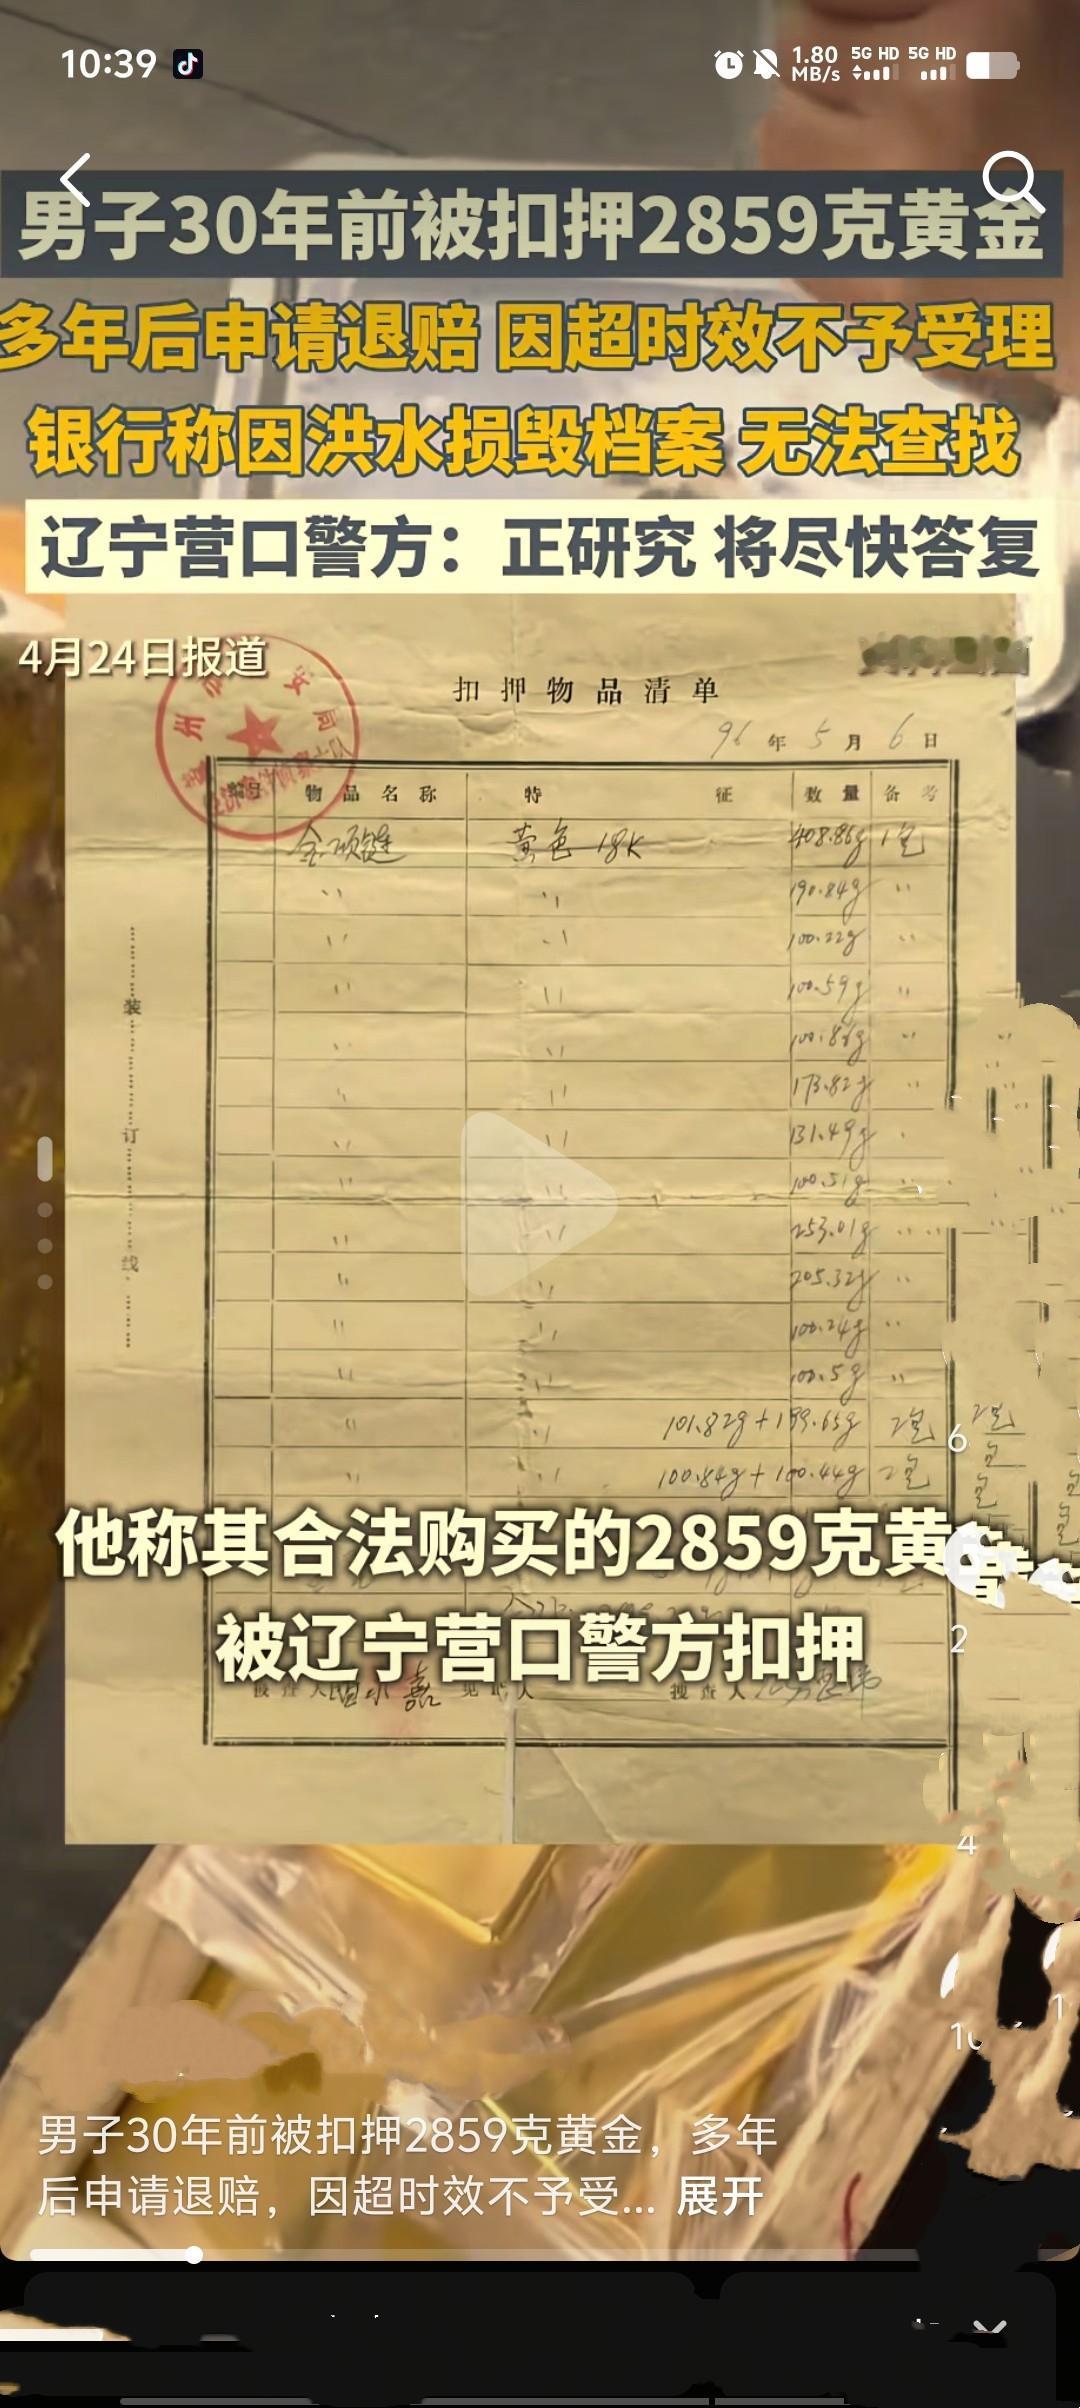 10:39
1.80
MB/s
5G HD 5G HD
男子30年前被扣押2859克黄金
多年后申请退赔 因超时效不予受理
银行称因洪水损毁档案 无法查找
辽宁营口警方：正研究 将尽快答复
4月24日报道
扣押物品清单
96年5月6日
编号 物品名称 特征 数量 备考
金项链 黄色 18K 408.86g 1包
〃 〃 190.84g 〃
〃 〃 100.22g 〃
〃 〃 100.59g 〃
〃 〃 100.86g 〃
〃 〃 173.82g 〃
〃 〃 131.49g
〃 〃 100.51g 〃
〃 〃 253.01g 〃
〃 〃 205.32g 〃
〃 〃 100.24g 〃
〃 〃 100.5g 〃
〃 〃 101.82g+199.65g 2包
〃 〃 100.84g+100.44g 2包
装
订
线
他称其合法购买的2859克黄
被辽宁营口警方扣押
搜查人
6
2
4
男子30年前被扣押2859克黄金，多年
后申请退赔，因超时效不予受... 展开